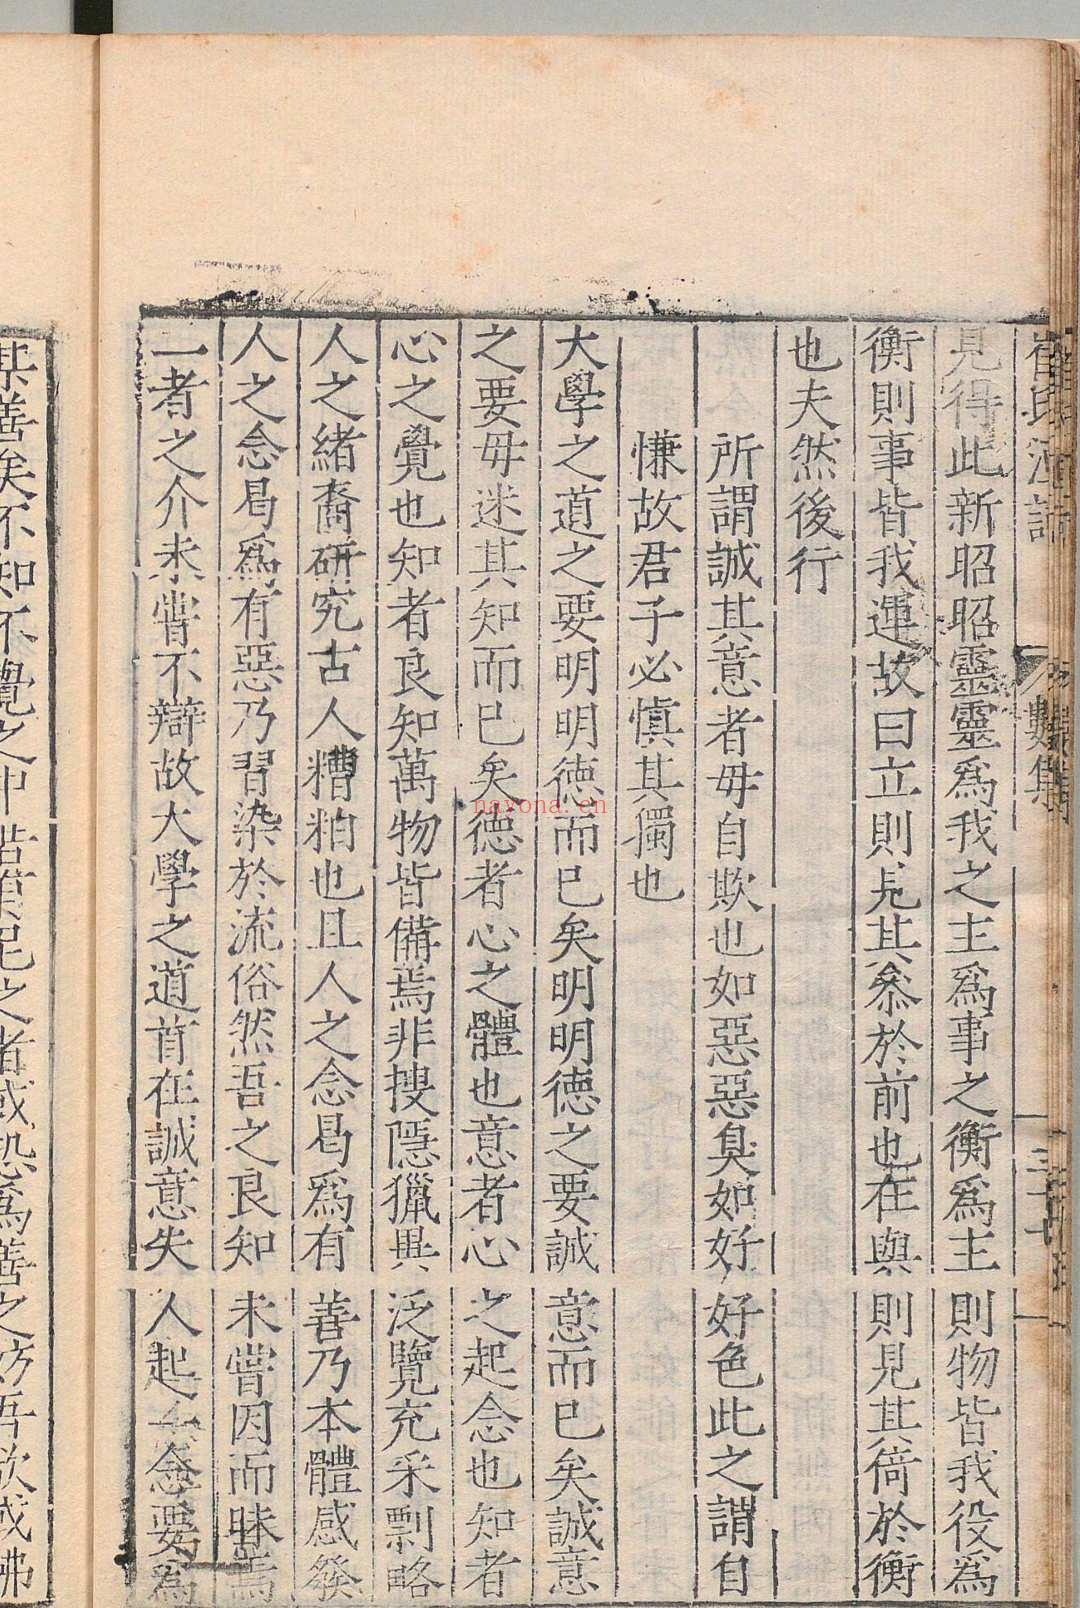 見得此新昭昭靈靈爲我之主爲事之衡爲主則物皆我役爲
衡則事皆我運故曰立則見其叅於前也在輿則見其倚於衡
也夫然後行
所謂誠其意者毋自欺也如惡惡臭如好好色此之謂自
慊故君子必慎其獨也
大學之道之要明明德而已矣明明德之要誠意而已矣誠意
之要毋迷其知而已矣德者心之體也意者心之起念也知者
心之覺也知者良知萬物皆備焉非搜隱獵異泛覽充采剽略
人之緒裔研究古人糟粕也且人之念曷爲有善乃本體感發
人之念曷爲有惡乃習染於流俗然吾之良知未嘗因而昧焉
二者之介未嘗不辯故大學之道首在誠意失人起一念要爲
善矣不知不覺之中
之者或恐爲善之妨吾欲或
nayona.cn